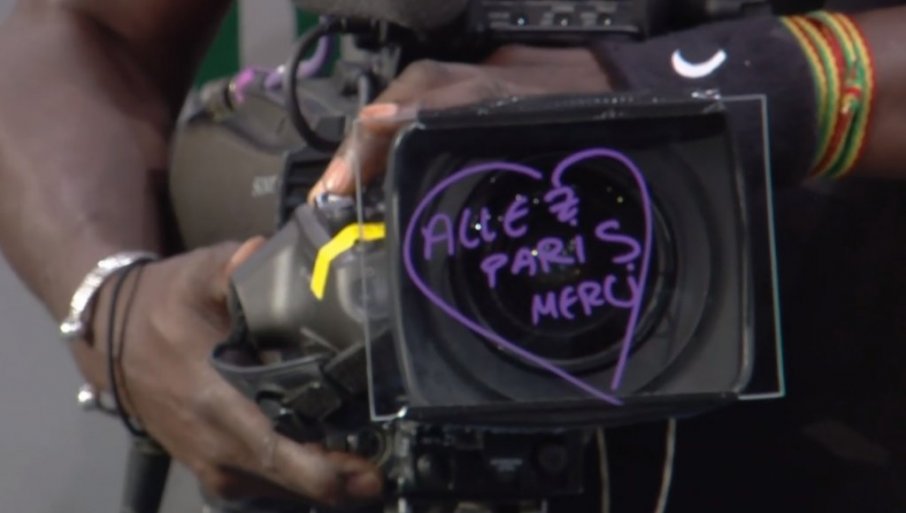 ALLEZ
PARIS
MERCI